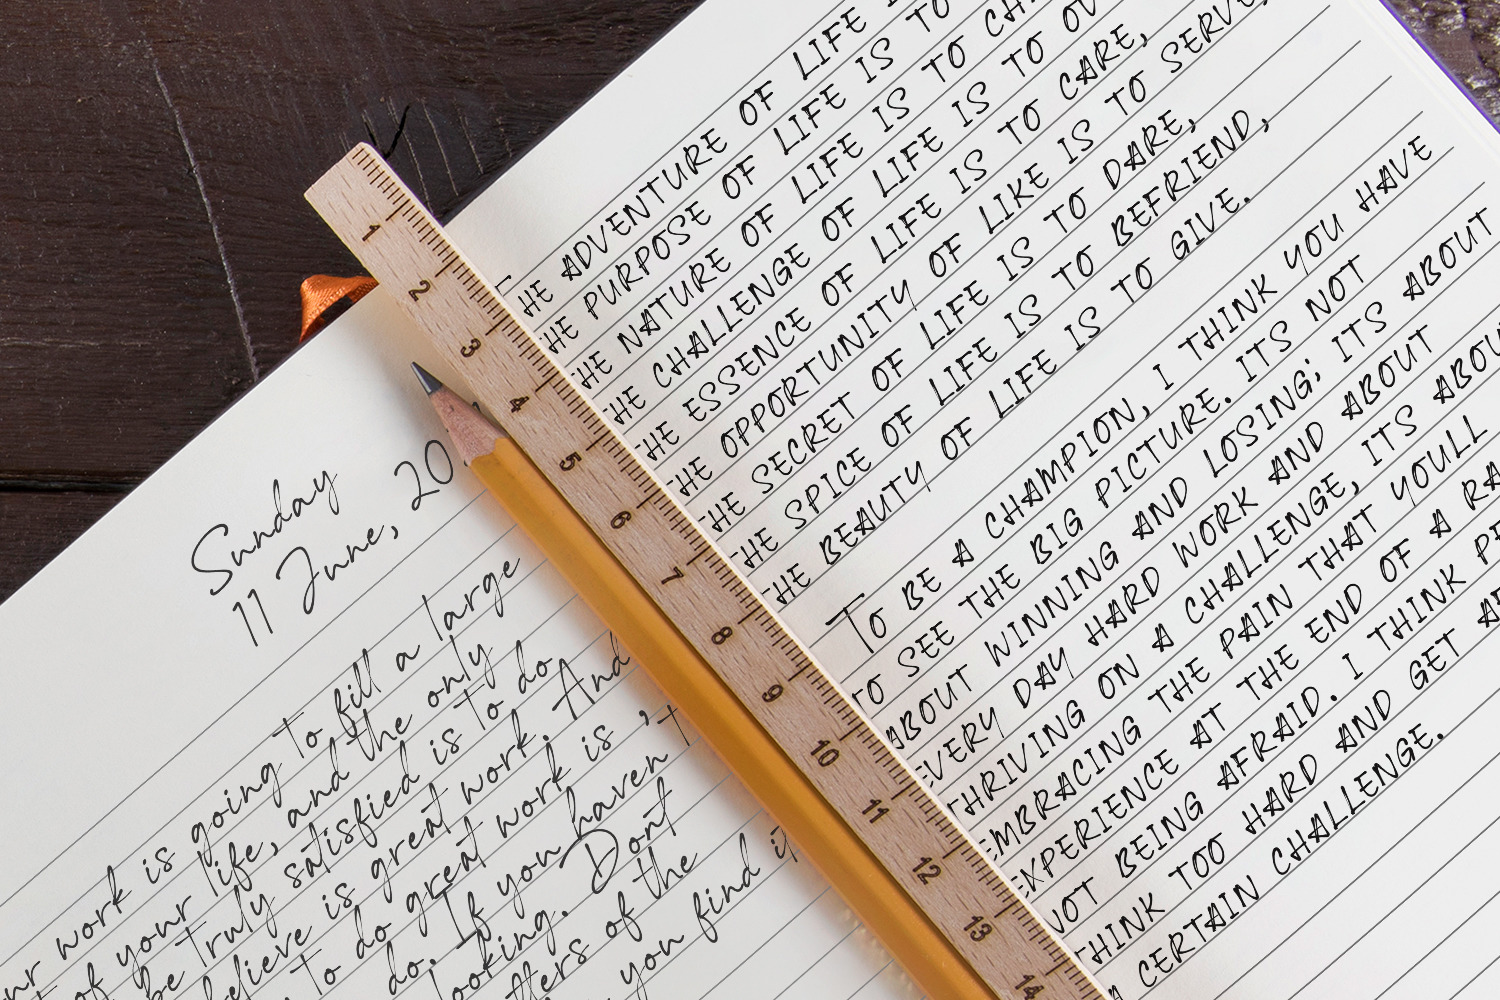 Sunday
11 June, 20
work is going to fill a large
of your life, and the only
be truly satisfied is to do
believe is great work. And
to do great work is
do. If you haven't
looking. Dont
of the
you find it
1
2
3
4
5
6
7
8
9
10
11
12
13
14
THE ADVENTURE OF LIFE
THE PURPOSE OF LIFE IS TO
THE NATURE OF LIFE IS TO
THE CHALLENGE OF LIFE IS TO
THE ESSENCE OF LIFE IS TO CARE,
THE OPPORTUNITY OF LIKE IS TO SERVE,
THE SECRET OF LIFE IS TO DARE,
THE SPICE OF LIFE IS TO BEFRIEND,
THE BEAUTY OF LIFE IS TO GIVE.
TO BE A CHAMPION, I THINK YOU HAVE
TO SEE THE BIG PICTURE. ITS NOT
ABOUT WINNING AND LOSING; ITS ABOUT
EVERY DAY HARD WORK AND ABOUT
THRIVING ON A CHALLENGE, ITS ABOUT
EMBRACING THE PAIN THAT YOULL
EXPERIENCE AT THE END OF A
NOT BEING AFRAID. I THINK
THINK TOO HARD AND GET
A CERTAIN CHALLENGE.